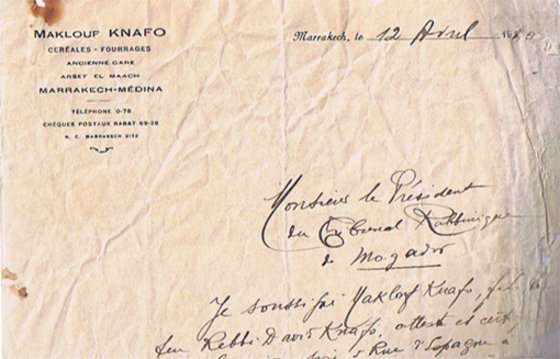 MAKLOUF KNAFO
CÉRÉALES - FOURRAGES
ANCIENNE GARE
ARSET EL MAACH
MARRAKECH-MÉDINA
TÉLÉPHONE 0-78
CHÈQUES POSTAUX RABAT 69-38
R. C. MARRAKECH 2172
Marrakech, le 12 Avril
Monsieur le Président
du Tribunal Rabbinique
de Mogador
Je soussigné Maklouf Knafo, fils de
feu Rebbi David Knafo, atteste et
Rue d'Espagne à